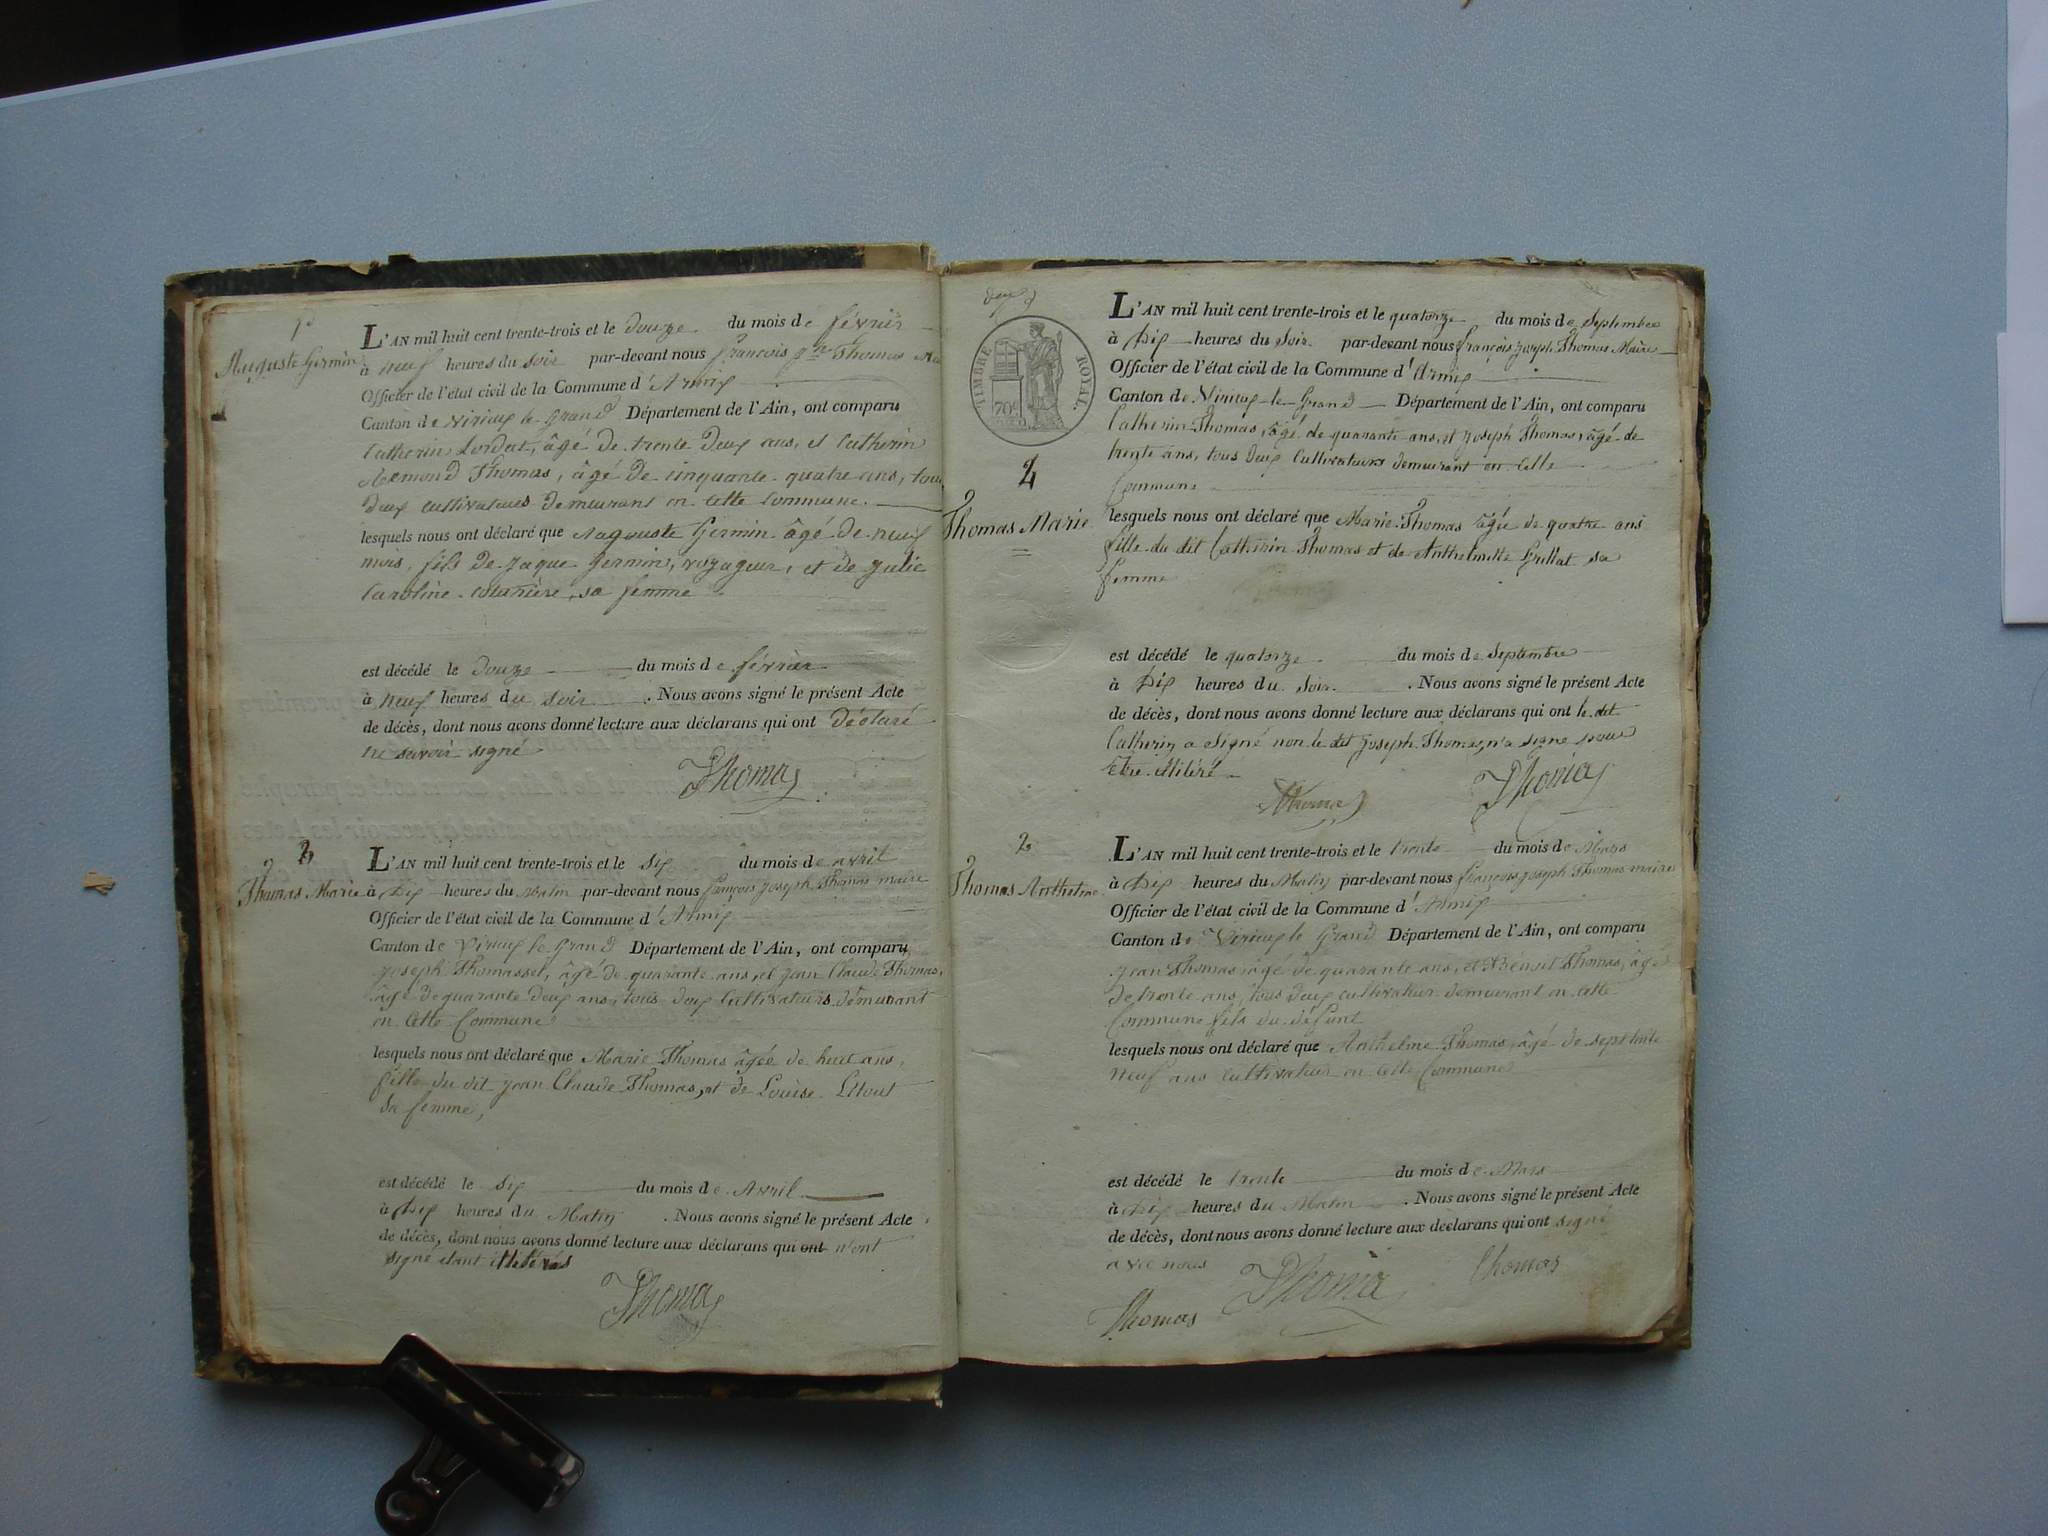 1
Auguste Germin
L'AN mil huit cent trente-trois et le douze du mois de février
à neuf heures du soir par-devant nous françois Thomas
Officier de l'état civil de la Commune d'Armix
Canton de Virieux le Grand Département de l'Ain, ont comparu
Catherin Lordat, âgé de trente deux ans, et Catherin
Thomas, âgé de cinquante quatre ans, tous
deux cultivateurs demeurant en cette commune.
lesquels nous ont déclaré que Auguste Germin âgé de neuf
mois, fils de Jaque Germin, voyageur, et de Julie
Caroline sa femme
est décédé le douze du mois de février
à neuf heures du soir. Nous avons signé le présent Acte
de décès, dont nous avons donné lecture aux déclarans qui ont déclaré
ne savoir signé
Thomas
2
Thomas Marie
L'AN mil huit cent trente-trois et le six du mois de avril
à dix heures du Matin par-devant nous françois Joseph Thomas maire
Officier de l'état civil de la Commune d'Armix
Canton de Virieux le Grand Département de l'Ain, ont comparu
Joseph Thomasset, âgé de quarante ans, et Jean Claude Thomas,
âgé de quarante deux ans, tous deux Cultivateurs demeurant
en Cette Commune
lesquels nous ont déclaré que Marie Thomas âgée de huit ans,
fille du dit Jean Claude Thomas, et de Louise
sa femme,
est décédé le six du mois de Avril
à dix heures du Matin. Nous avons signé le présent Acte
de décès, dont nous avons donné lecture aux déclarans qui ont n'ont
signé étant illitérés
Thomas
TIMBRE ROYAL.
70c
4
Thomas Marie
L'AN mil huit cent trente-trois et le quatorze du mois de Septembre
à Dix heures du Soir. par-devant nous françois Joseph Thomas Maire
Officier de l'état civil de la Commune d'Armix
Canton de Virieux le Grand Département de l'Ain, ont comparu
Catherin Thomas, âgé de quarante ans, et Joseph Thomas, âgé de
trente ans, tous deux Cultivateurs demeurant en Cette
Commune
lesquels nous ont déclaré que Marie Thomas âgée de quatre ans
fille du dit Catherin Thomas et de Anthelmette Grillat sa
femme
est décédé le quatorze du mois de Septembre
à Dix heures du Soir. Nous avons signé le présent Acte
de décès, dont nous avons donné lecture aux déclarans qui ont le dit
Catherin a Signé non le dit Joseph Thomas, n'a signé pour
être illitéré
Thomas
Thomas
2
Thomas Anthelme
L'AN mil huit cent trente-trois et le trente du mois de Mars
à Dix heures du Matin par-devant nous françois Joseph Thomas maire
Officier de l'état civil de la Commune d'Armix
Canton de Virieux le Grand Département de l'Ain, ont comparu
Jean Thomas âgé de quarante ans, et Benoit Thomas, âgé
de trente ans, tous deux cultivateur demeurant en cette
Commune fils du défunt
lesquels nous ont déclaré que Anthelme Thomas, âgé de septante
neuf ans cultivateur en Cette Commune
est décédé le trente du mois de Mars
à Dix heures du Matin. Nous avons signé le présent Acte
de décès, dont nous avons donné lecture aux déclarans qui ont signé
avec nous
Thomas
Thomas
Thomas